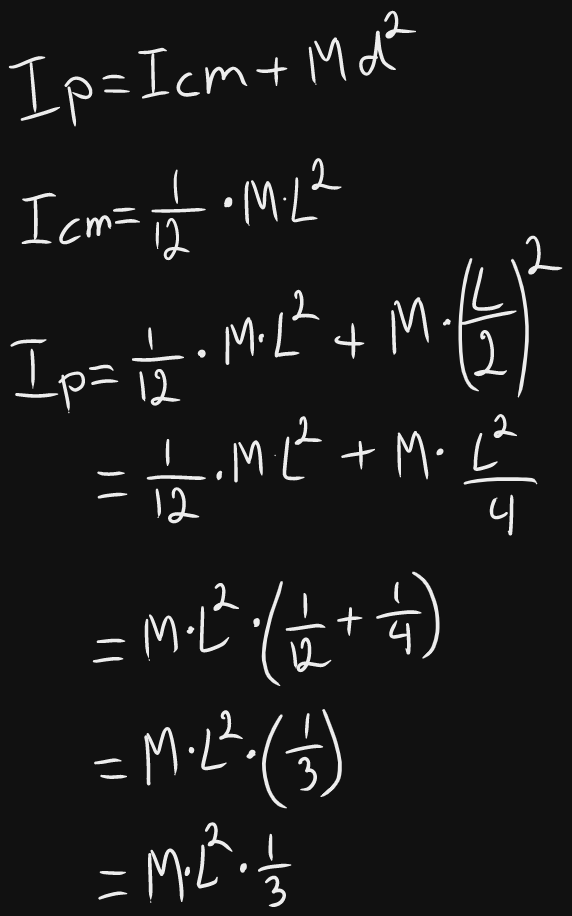 Ip = Icm + Md²
Icm = 1/12 · M·L²
Ip = 1/12 · M·L² + M·(L/2)²
= 1/12 · M·L² + M· L²/4
= M·L²·(1/12 + 1/4)
= M·L²·(1/3)
= M·L²·1/3